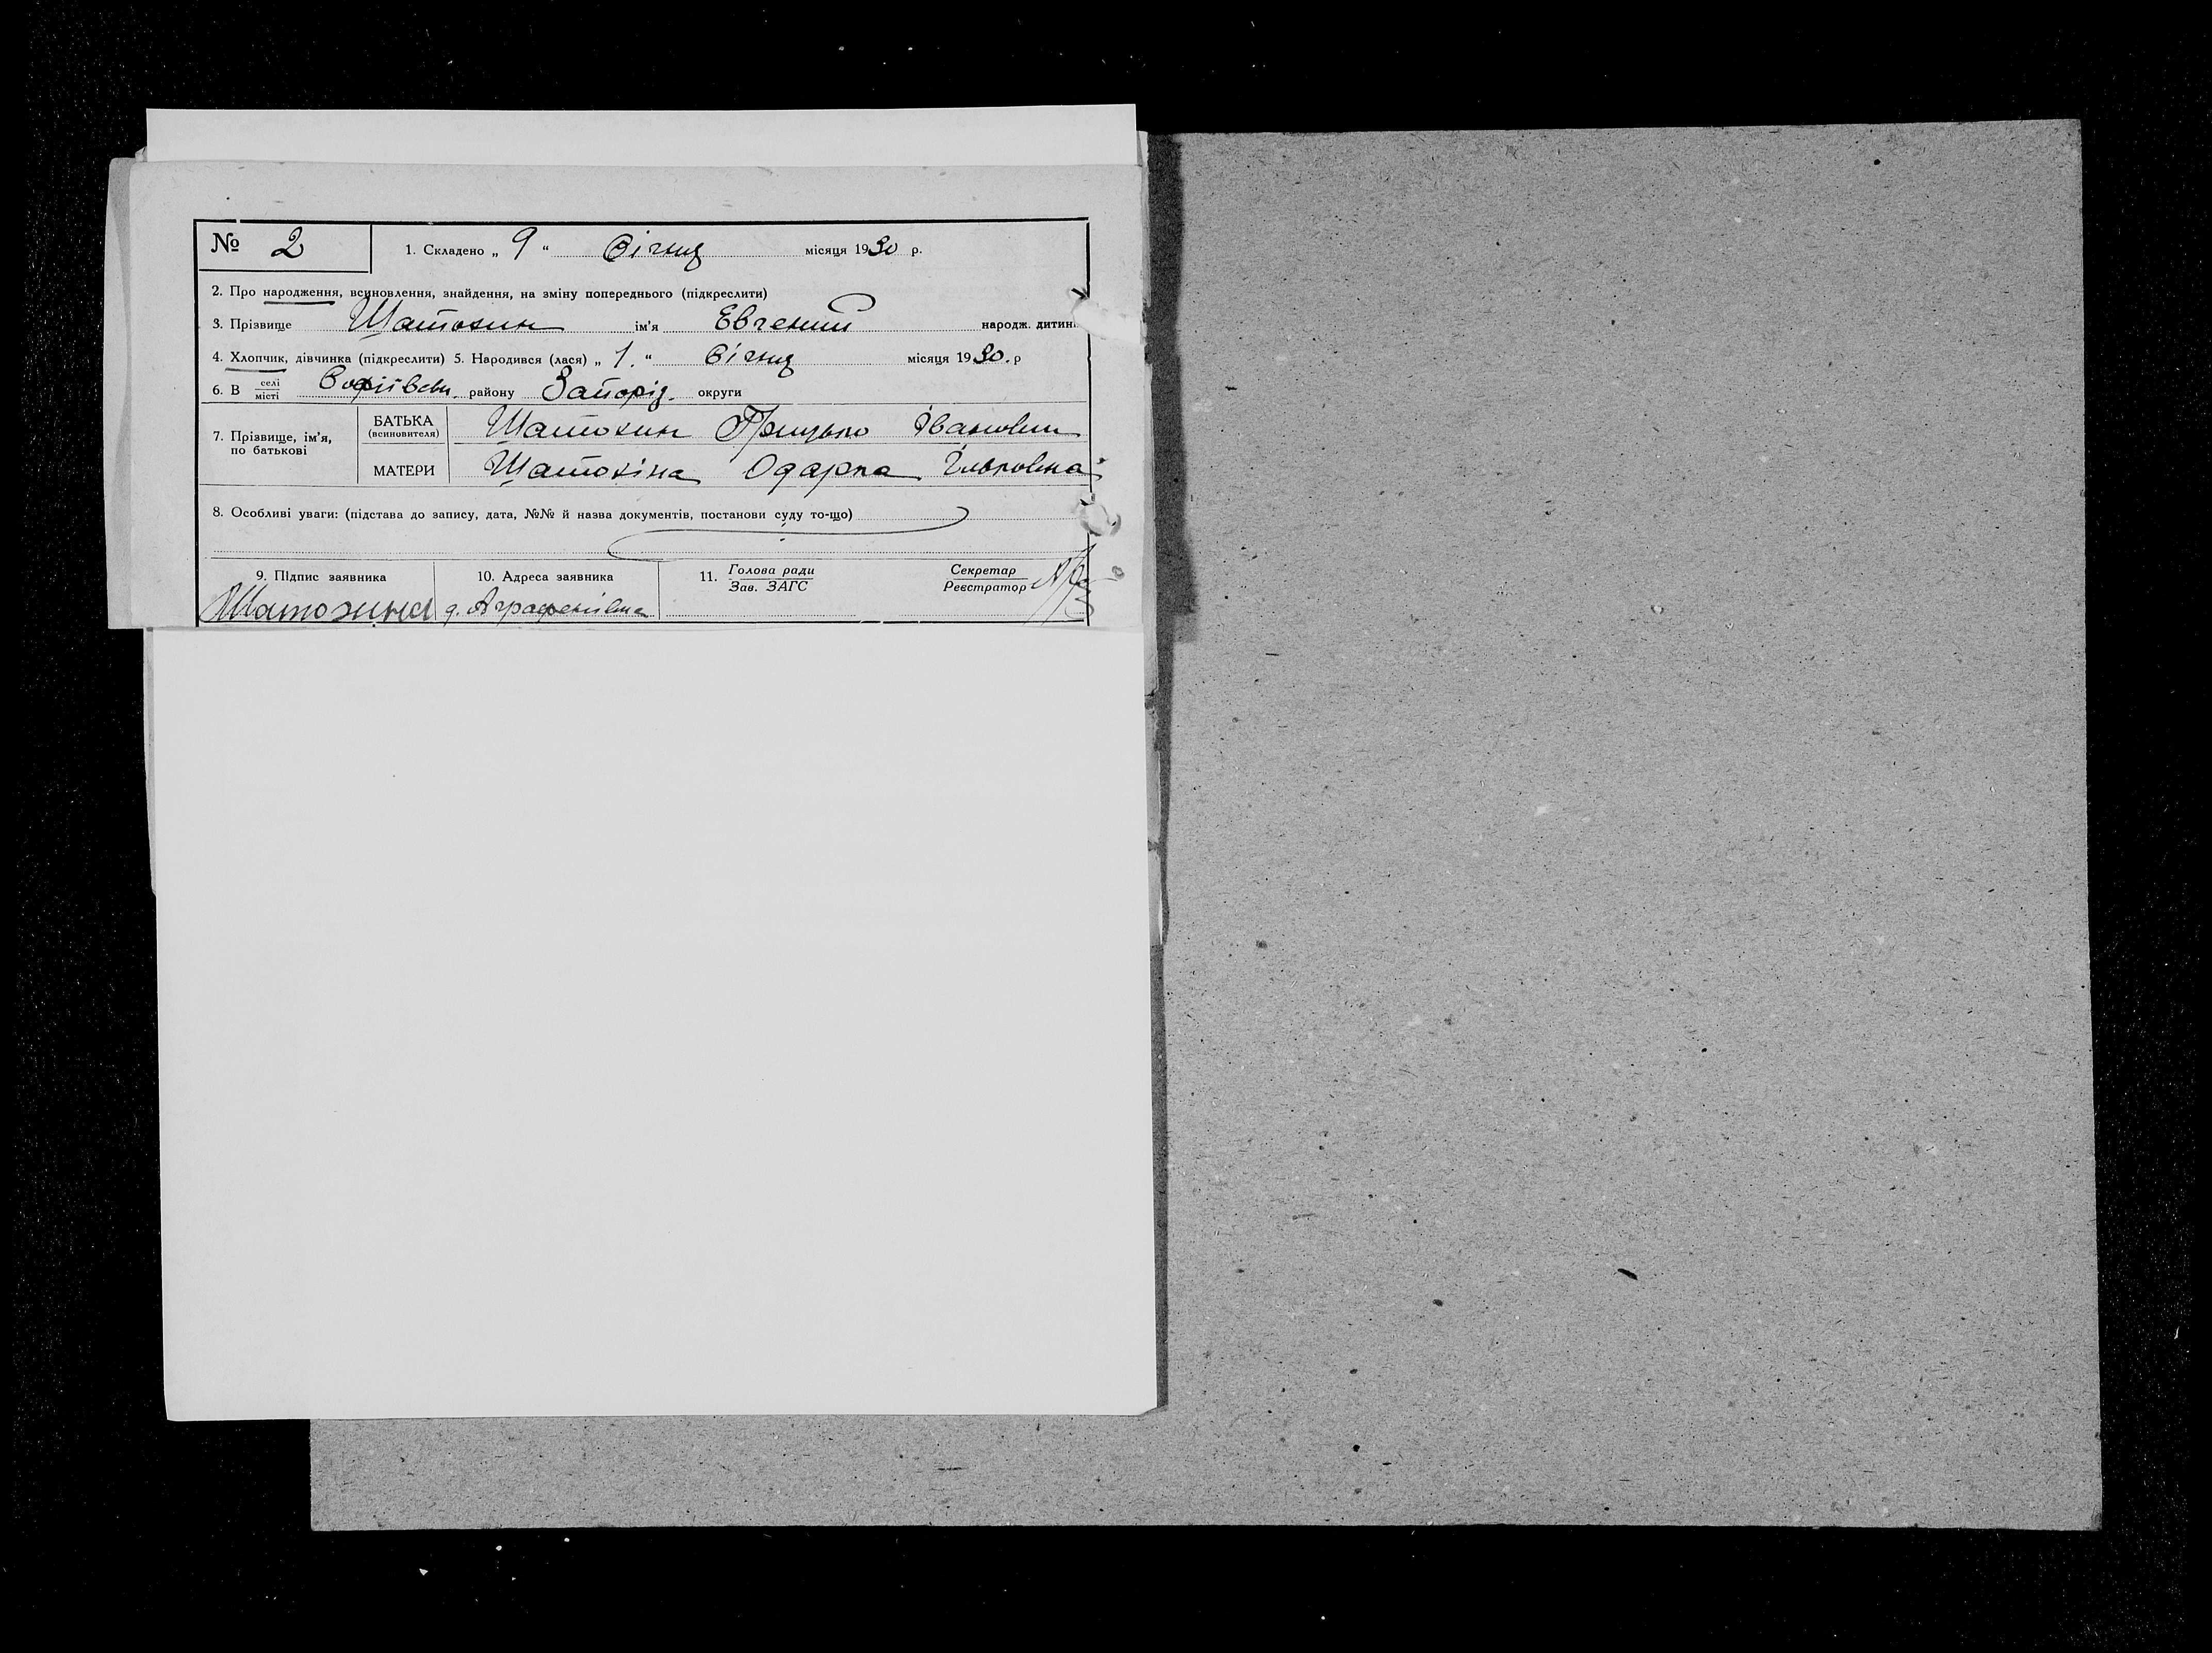 № 2
1. Складено „ 9 “ Січня місяця 1930 р.
2. Про народження, всиновлення, знайдення, на зміну попереднього (підкреслити)
3. Прізвище Шатохин ім'я Евгений народж. дитин
4. Хлопчик, дівчинка (підкреслити) 5. Народився (лася) „ 1. “ Січня місяця 1930. р
6. В селі місті Софіївськ. району Запоріз. округи
7. Прізвище, ім'я, по батькові
БАТЬКА (всиновителя) Шатохин Грицько Іванович
МАТЕРИ Шатохіна Одарка
8. Особливі уваги: (підстава до запису, дата, №№ й назва документів, постанови суду то-що)
9. Підпис заявника 10. Адреса заявника 11. Голова ради Зав. ЗАГС Секретар Реєстратор
Шатохина д. Аграфенівка